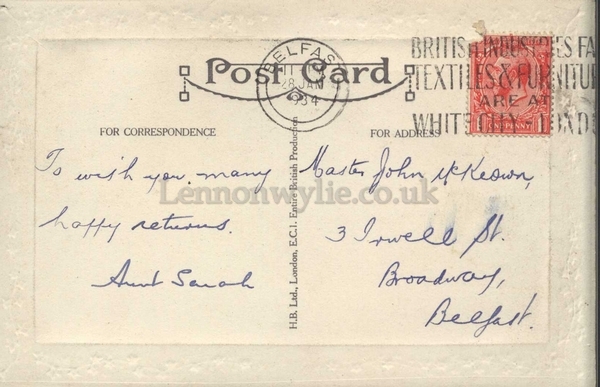 BELFAST
11
28 JAN
1934
BRITISH INDUSTRIES FA
TEXTILES & FURNITU
ARE AT
WHITE CITY LONDO
Post Card
FOR CORRESPONDENCE
FOR ADDRESS
To wish you many
happy returns.
Aunt Sarah
H.B. Ltd., London, E.C.1. Entire British Production
Master John McKeown,
3 Irwell St.
Broadway,
Belfast.
Lennonwylie.co.uk